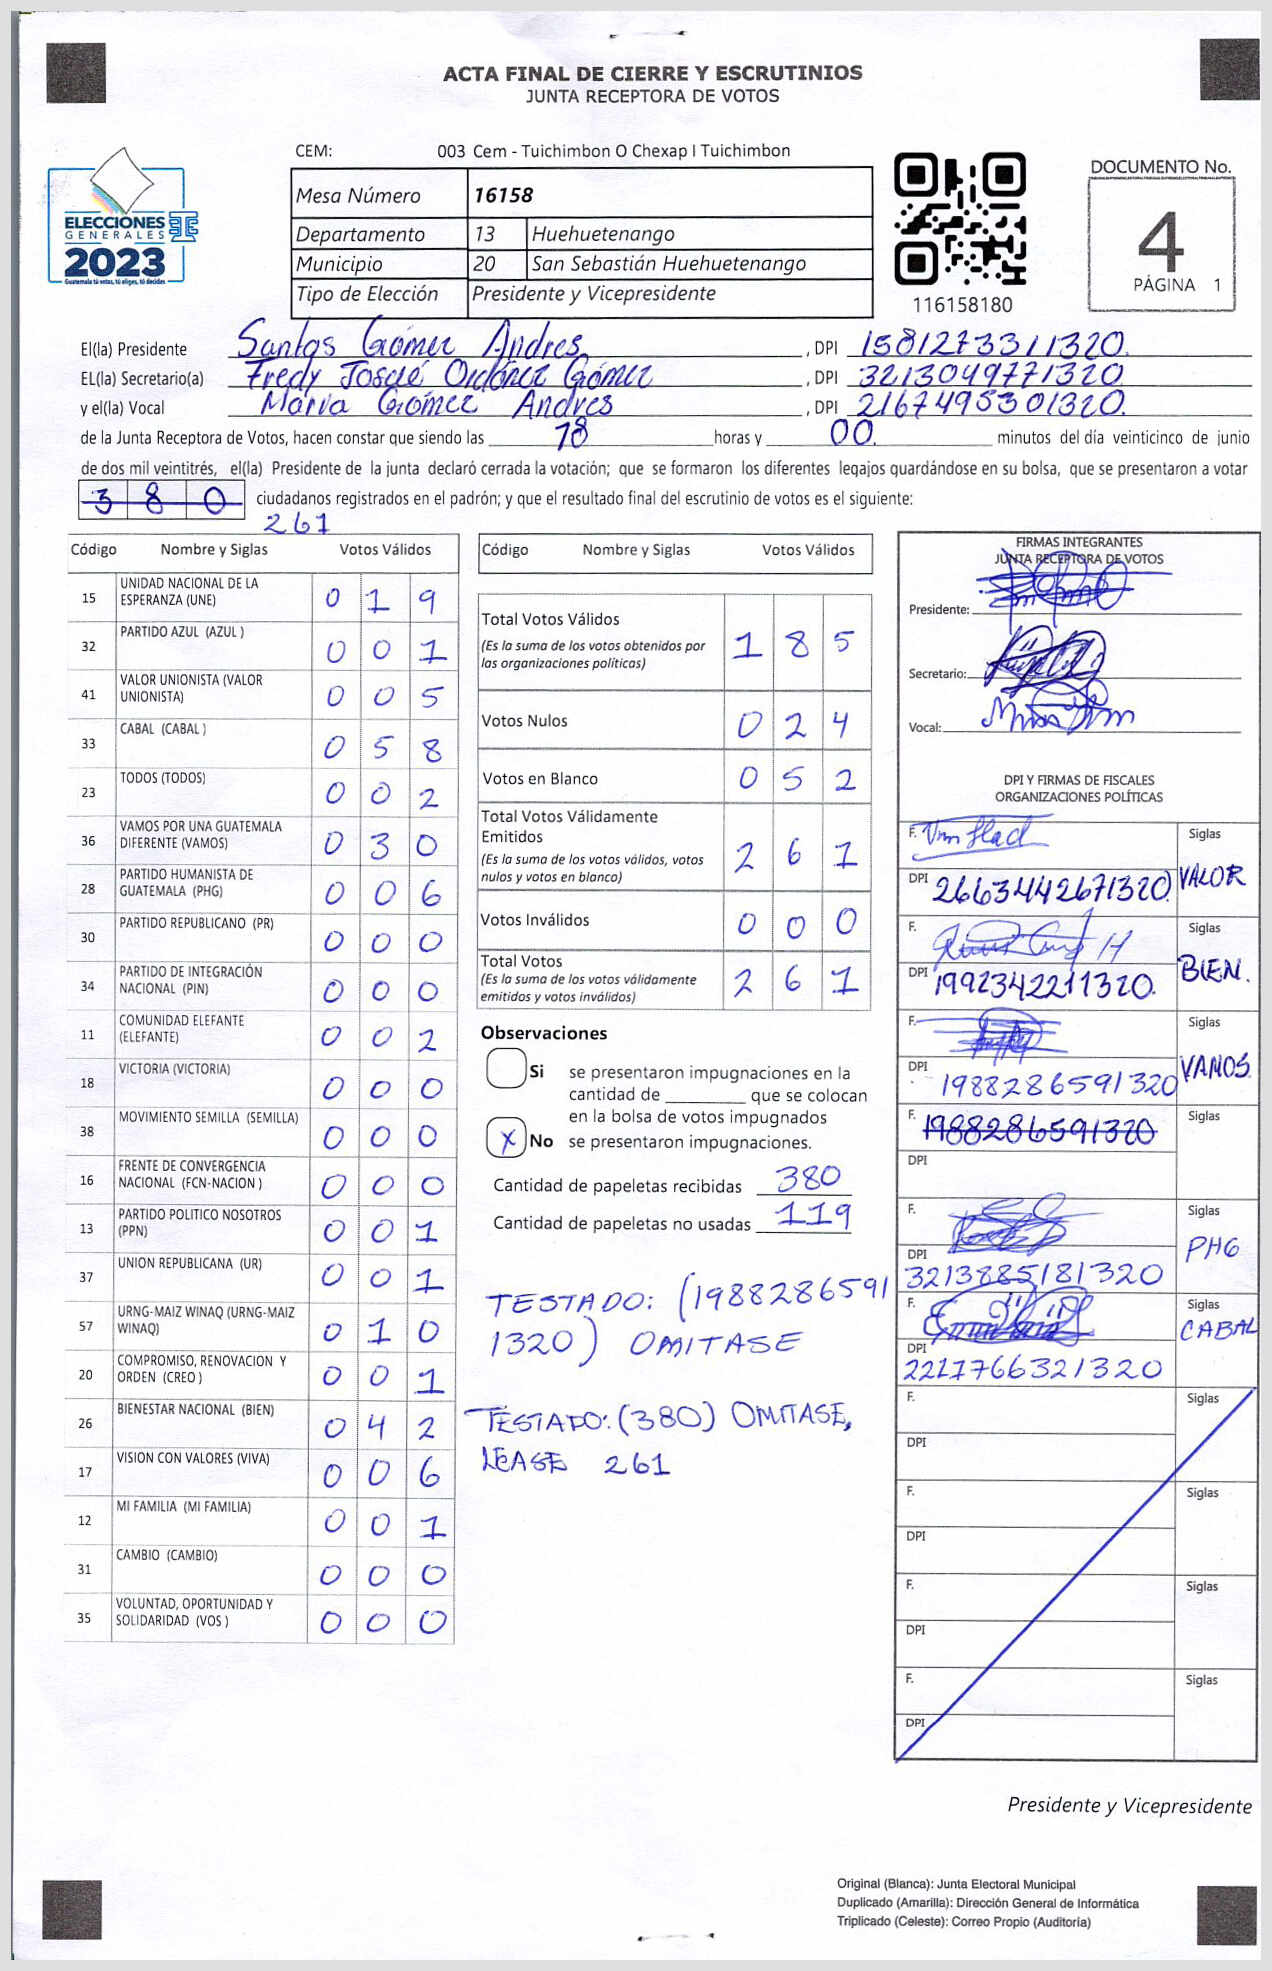 ACTA FINAL DE CIERRE Y ESCRUTINIOS
JUNTA RECEPTORA DE VOTOS
CEM: 003 Cem - Tuichimbon O Chexap I Tuichimbon
ELECCIONES
GENERALES
2023
Guatemala tú votas, tú eliges, tú decides
Mesa Número 16158
Departamento 13 Huehuetenango
Municipio 20 San Sebastián Huehuetenango
Tipo de Elección Presidente y Vicepresidente
116158180
DOCUMENTO No.
4
PÁGINA 1
El(la) Presidente Santos Gómez Andres, DPI 1581273311320
EL(la) Secretario(a) Fredy Josué Ordóñez Gómez, DPI 3213049771320
y el(la) Vocal María Gómez Andres, DPI 2167495301320.
de la Junta Receptora de Votos, hacen constar que siendo las 18 horas y 00 minutos del día veinticinco de junio
de dos mil veintitrés, el(la) Presidente de la junta declaró cerrada la votación; que se formaron los diferentes legajos guardándose en su bolsa, que se presentaron a votar
380 ciudadanos registrados en el padrón; y que el resultado final del escrutinio de votos es el siguiente:
261
Código Nombre y Siglas Votos Válidos
15 UNIDAD NACIONAL DE LA ESPERANZA (UNE) 0 1 9
32 PARTIDO AZUL (AZUL ) 0 0 1
41 VALOR UNIONISTA (VALOR UNIONISTA) 0 0 5
33 CABAL (CABAL ) 0 5 8
23 TODOS (TODOS) 0 0 2
36 VAMOS POR UNA GUATEMALA DIFERENTE (VAMOS) 0 3 0
28 PARTIDO HUMANISTA DE GUATEMALA (PHG) 0 0 6
30 PARTIDO REPUBLICANO (PR) 0 0 0
34 PARTIDO DE INTEGRACIÓN NACIONAL (PIN) 0 0 0
11 COMUNIDAD ELEFANTE (ELEFANTE) 0 0 2
18 VICTORIA (VICTORIA) 0 0 0
38 MOVIMIENTO SEMILLA (SEMILLA) 0 0 0
16 FRENTE DE CONVERGENCIA NACIONAL (FCN-NACION ) 0 0 0
13 PARTIDO POLITICO NOSOTROS (PPN) 0 0 1
37 UNION REPUBLICANA (UR) 0 0 1
57 URNG-MAIZ WINAQ (URNG-MAIZ WINAQ) 0 1 0
20 COMPROMISO, RENOVACION Y ORDEN (CREO ) 0 0 1
26 BIENESTAR NACIONAL (BIEN) 0 4 2
17 VISION CON VALORES (VIVA) 0 0 6
12 MI FAMILIA (MI FAMILIA) 0 0 1
31 CAMBIO (CAMBIO) 0 0 0
35 VOLUNTAD, OPORTUNIDAD Y SOLIDARIDAD (VOS ) 0 0 0
Código Nombre y Siglas Votos Válidos
Total Votos Válidos 1 8 5
(Es la suma de los votos obtenidos por las organizaciones políticas)
Votos Nulos 0 2 4
Votos en Blanco 0 5 2
Total Votos Válidamente Emitidos 2 6 1
(Es la suma de los votos válidos, votos nulos y votos en blanco)
Votos Inválidos 0 0 0
Total Votos 2 6 1
(Es la suma de los votos válidamente emitidos y votos inválidos)
Observaciones
Si se presentaron impugnaciones en la
cantidad de ________ que se colocan
en la bolsa de votos impugnados
X No se presentaron impugnaciones.
Cantidad de papeletas recibidas 380
Cantidad de papeletas no usadas 119
TESTADO: (1988286591
1320) OMITASE
TESTADO: (380) OMITASE,
LEASE 261
FIRMAS INTEGRANTES
JUNTA RECEPTORA DE VOTOS
Presidente:
Secretario:
Vocal:
DPI Y FIRMAS DE FISCALES
ORGANIZACIONES POLÍTICAS
F. Siglas
DPI 2663442671320 VALOR
F. Siglas
DPI 1992342211320. BIEN.
F. Siglas
DPI 1988286591320 VAMOS.
F. 1988286591320 Siglas
DPI
F. Siglas
DPI 3213885181320 PHG
F. Siglas
DPI 2217766321320 CABAL
F. Siglas
DPI
F. Siglas
DPI
F. Siglas
DPI
F. Siglas
DPI
Presidente y Vicepresidente
Original (Blanca): Junta Electoral Municipal
Duplicado (Amarilla): Dirección General de Informática
Triplicado (Celeste): Correo Propio (Auditoría)